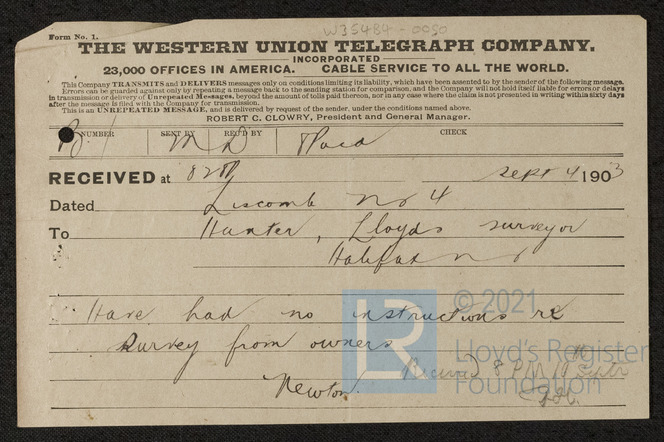 W35484-0050
Form No. 1.
THE WESTERN UNION TELEGRAPH COMPANY.
INCORPORATED
23,000 OFFICES IN AMERICA. CABLE SERVICE TO ALL THE WORLD.
This Company TRANSMITS and DELIVERS messages only on conditions limiting its liability, which have been assented to by the sender of the following message.
Errors can be guarded against only by repeating a message back to the sending station for comparison, and the Company will not hold itself liable for errors or delays
in transmission or delivery of Unrepeated Messages, beyond the amount of tolls paid thereon, nor in any case where the claim is not presented in writing within sixty days
after the message is filed with the Company for transmission.
This is an UNREPEATED MESSAGE, and is delivered by request of the sender, under the conditions named above.
ROBERT C. CLOWRY, President and General Manager.
NUMBER SENT BY REC'D BY CHECK
RECEIVED at Sept 4 1903
Dated Liscomb NS 4
To Hunter, Lloyds surveyor
Halifax NS
Have had no instructions re
survey from owners
Newton
Received 8 PM Septr
© 2021
LR
Lloyd's Register
Foundation